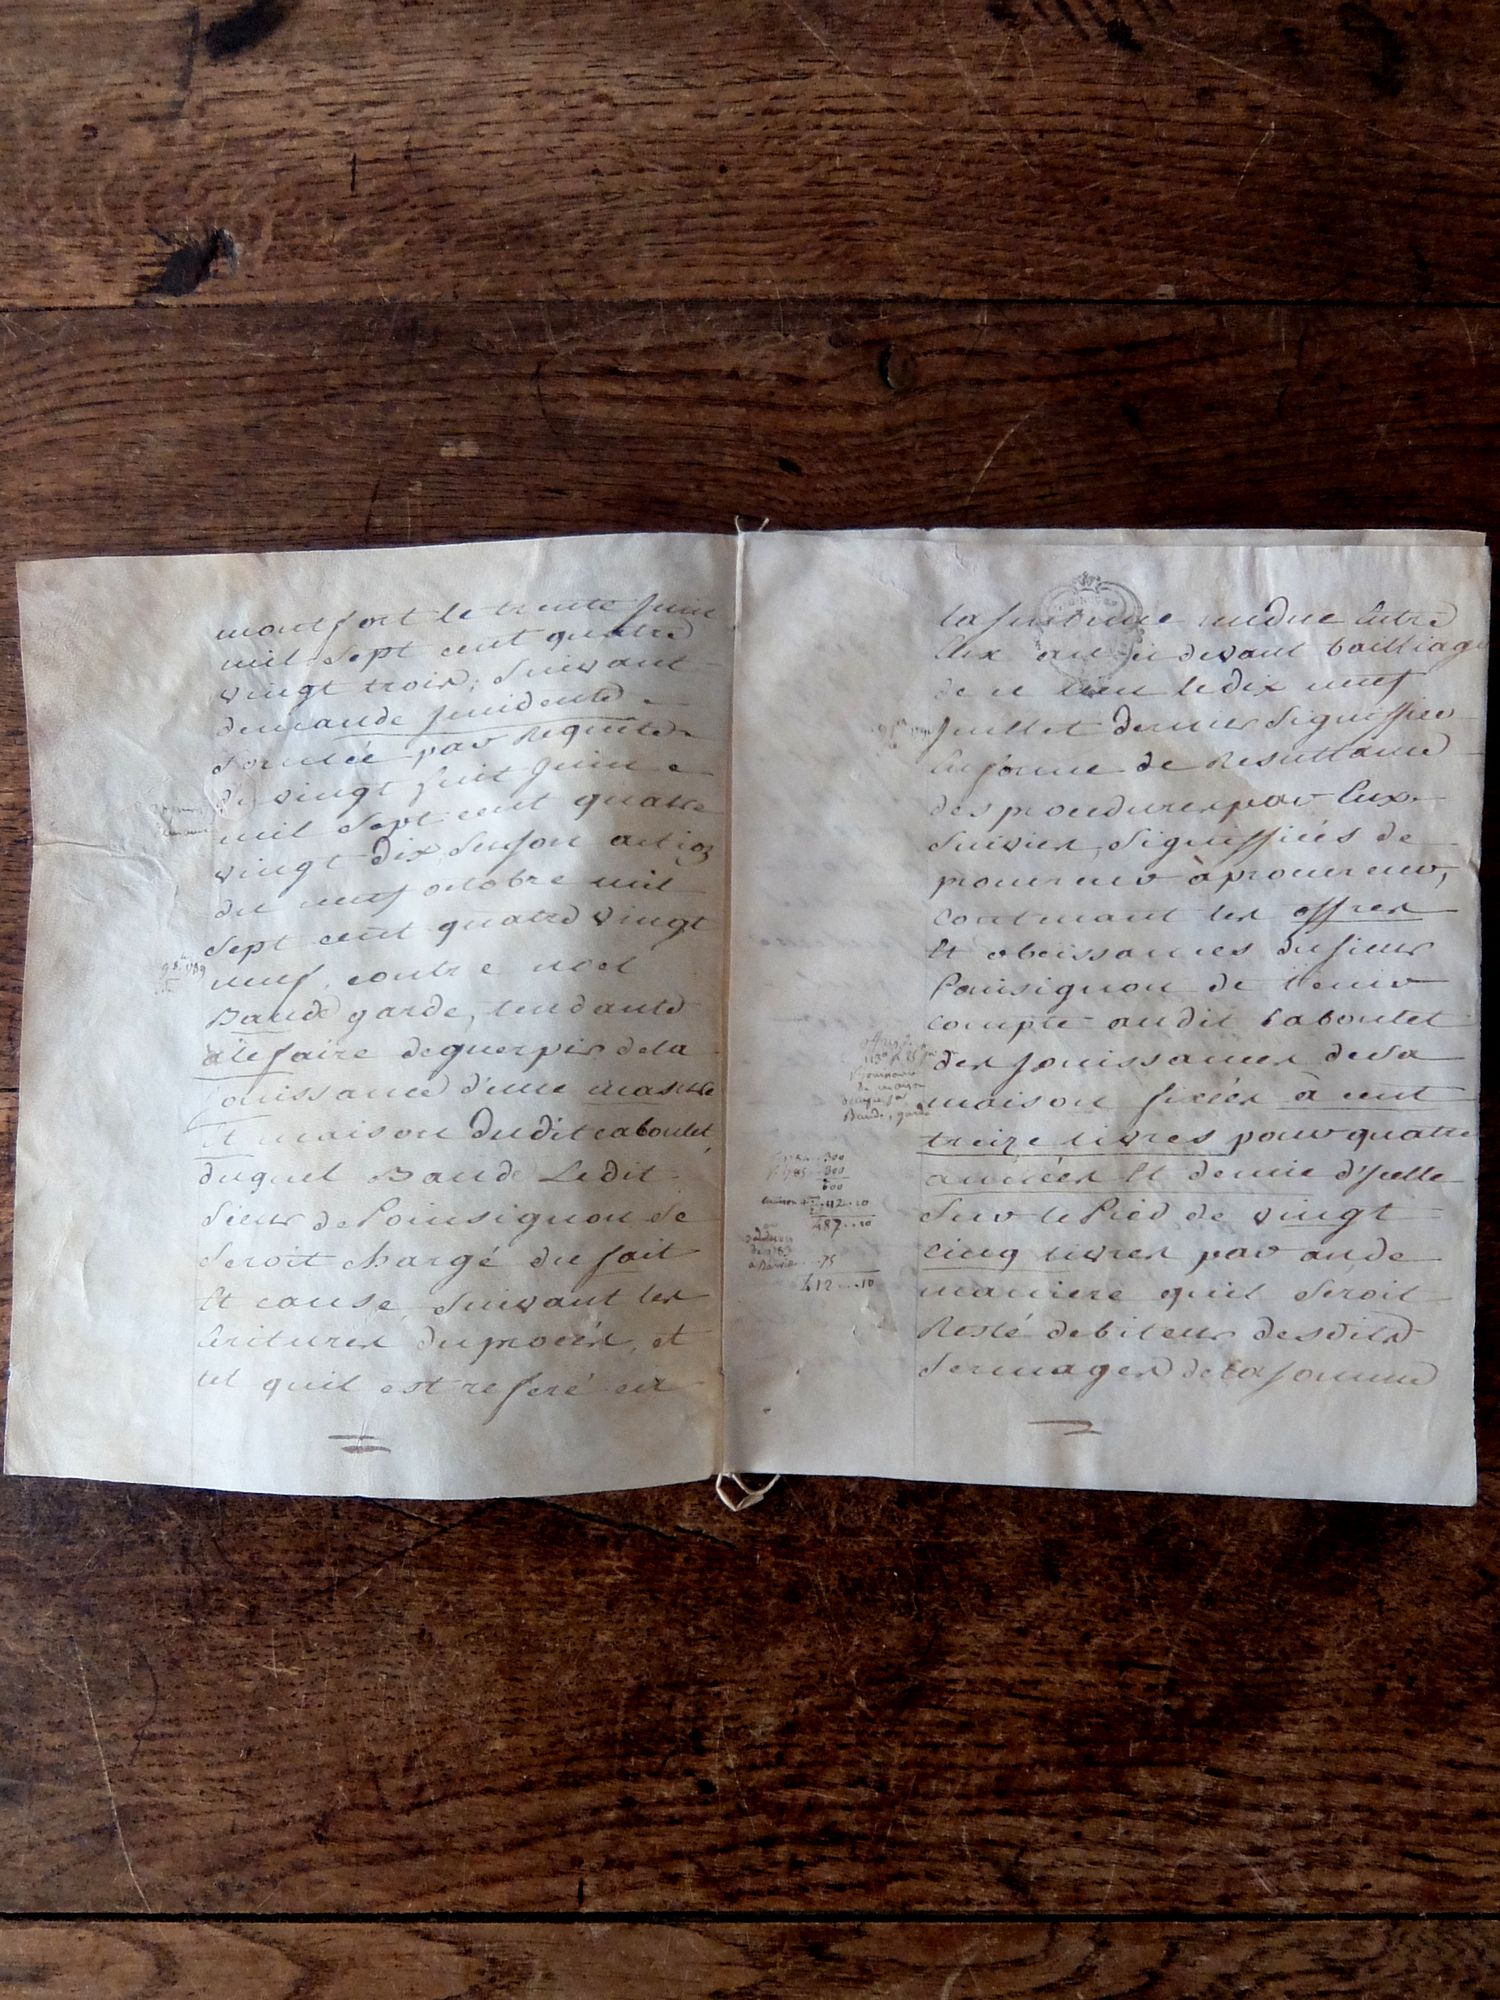 montfort le trente juin
mil sept cent quatre
vingt trois, suivant
demande incidente
formée par Requete
du vingt huit juin
mil sept cent quatre
vingt dix, sur son action
du neuf octobre mil
sept cent quatre vingt
neuf, contre noel
Baude garde, tendante
à le faire deguerpir de la
jouissance d'une masure
et maison dudit caboulet
duquel Baude Ledit
Sieur de Poinsignon se
seroit chargé du fait
Et cause, suivant les
Ecritures du procès, et
tel quil est referé en
9 8bre 1789
la sentence rendue Entre
Eux au ci devant bailliage
de ce lieu le dix neuf
juillet dernier signiffiée
En forme de Resultance
des procedures par Eux
suivies, signiffiées de
procureur à procureur,
contenant les offres
Et obeissances du sieur
Poinsignon de tenir
compte audit Caboulet
des jouissances de sa
maison fixées à cent
treize livres pour quatre
années Et demie d'jcelle
sur le Pied de vingt
cinq livres par an, de
maniere quil seroit
Resté debiteur desdits
fermages de la somme
offres de
de maison
Baude, garde
1784 . . 300
1785 . . 300
600
. . 112 . . 10
487 . . 10
. . 75
412 . . . 10